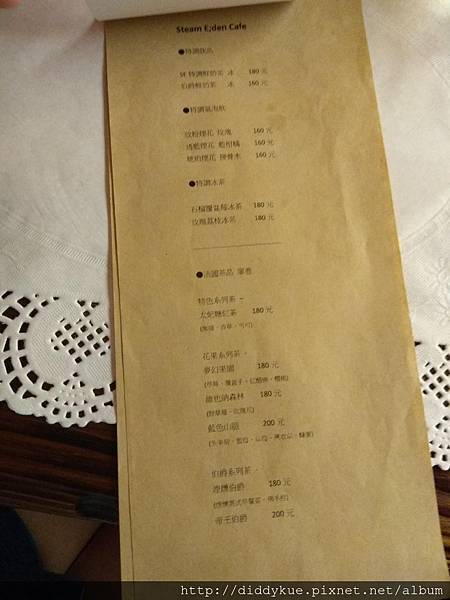 Steam E;den Cafe
●特調飲品
特調鮮奶茶 冰 180 元
伯爵鮮奶茶 冰 160 元
●特調氣泡飲
玫粉煙花 玫瑰 160 元
瑪藍煙花 藍柑橘 160 元
琥珀煙花 接骨木 160 元
●特調冰茶
石榴覆盆莓冰茶 180 元
玫瑰荔枝冰茶 180 元
●法國茶品 單壺
特色系列茶 -
太妃糖紅茶 180 元
(焦糖、香草、可可)
花果系列茶 -
夢幻果園 180 元
維也納森林 180 元
藍色山脈 200 元
伯爵系列茶 -
煙燻伯爵 180 元
帝王伯爵 200 元
http://diddykue.pixnet.net/album